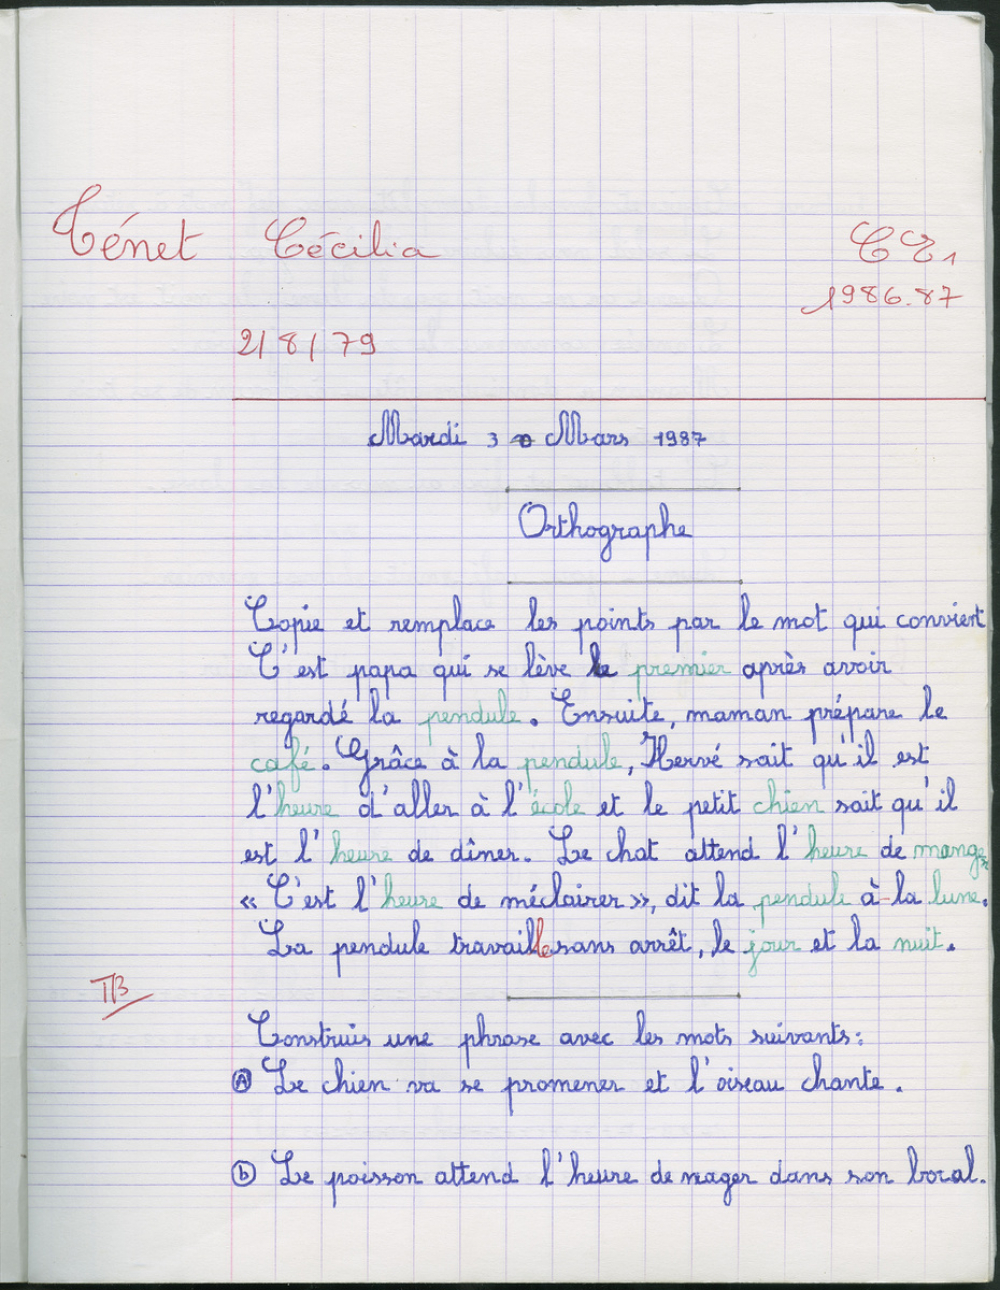 Ténet Cécilia CE1
1986.87
2/8/79
Mardi 3 Mars 1987
Orthographe
Copie et remplace les points par le mot qui convient
C'est papa qui se lève le premier après avoir
regardé la pendule. Ensuite, maman prépare le
café. Grâce à la pendule, Hervé sait qu'il est
l'heure d'aller à l'école et le petit chien sait qu'il
est l'heure de dîner. Le chat attend l'heure de manger
« C'est l'heure de méclairer », dit la pendule à la lune.
La pendule travaille sans arrêt, le jour et la nuit.
TB
Construis une phrase avec les mots suivants:
a Le chien va se promener et l'oiseau chante.
b Le poisson attend l'heure de nager dans son bocal.